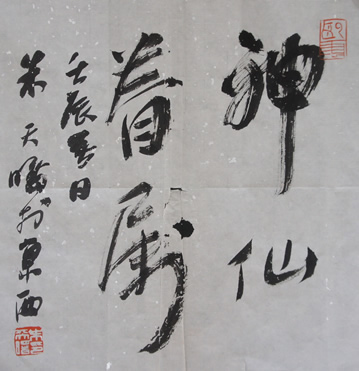 神仙
眷属
壬辰春日
朱天曙於京西